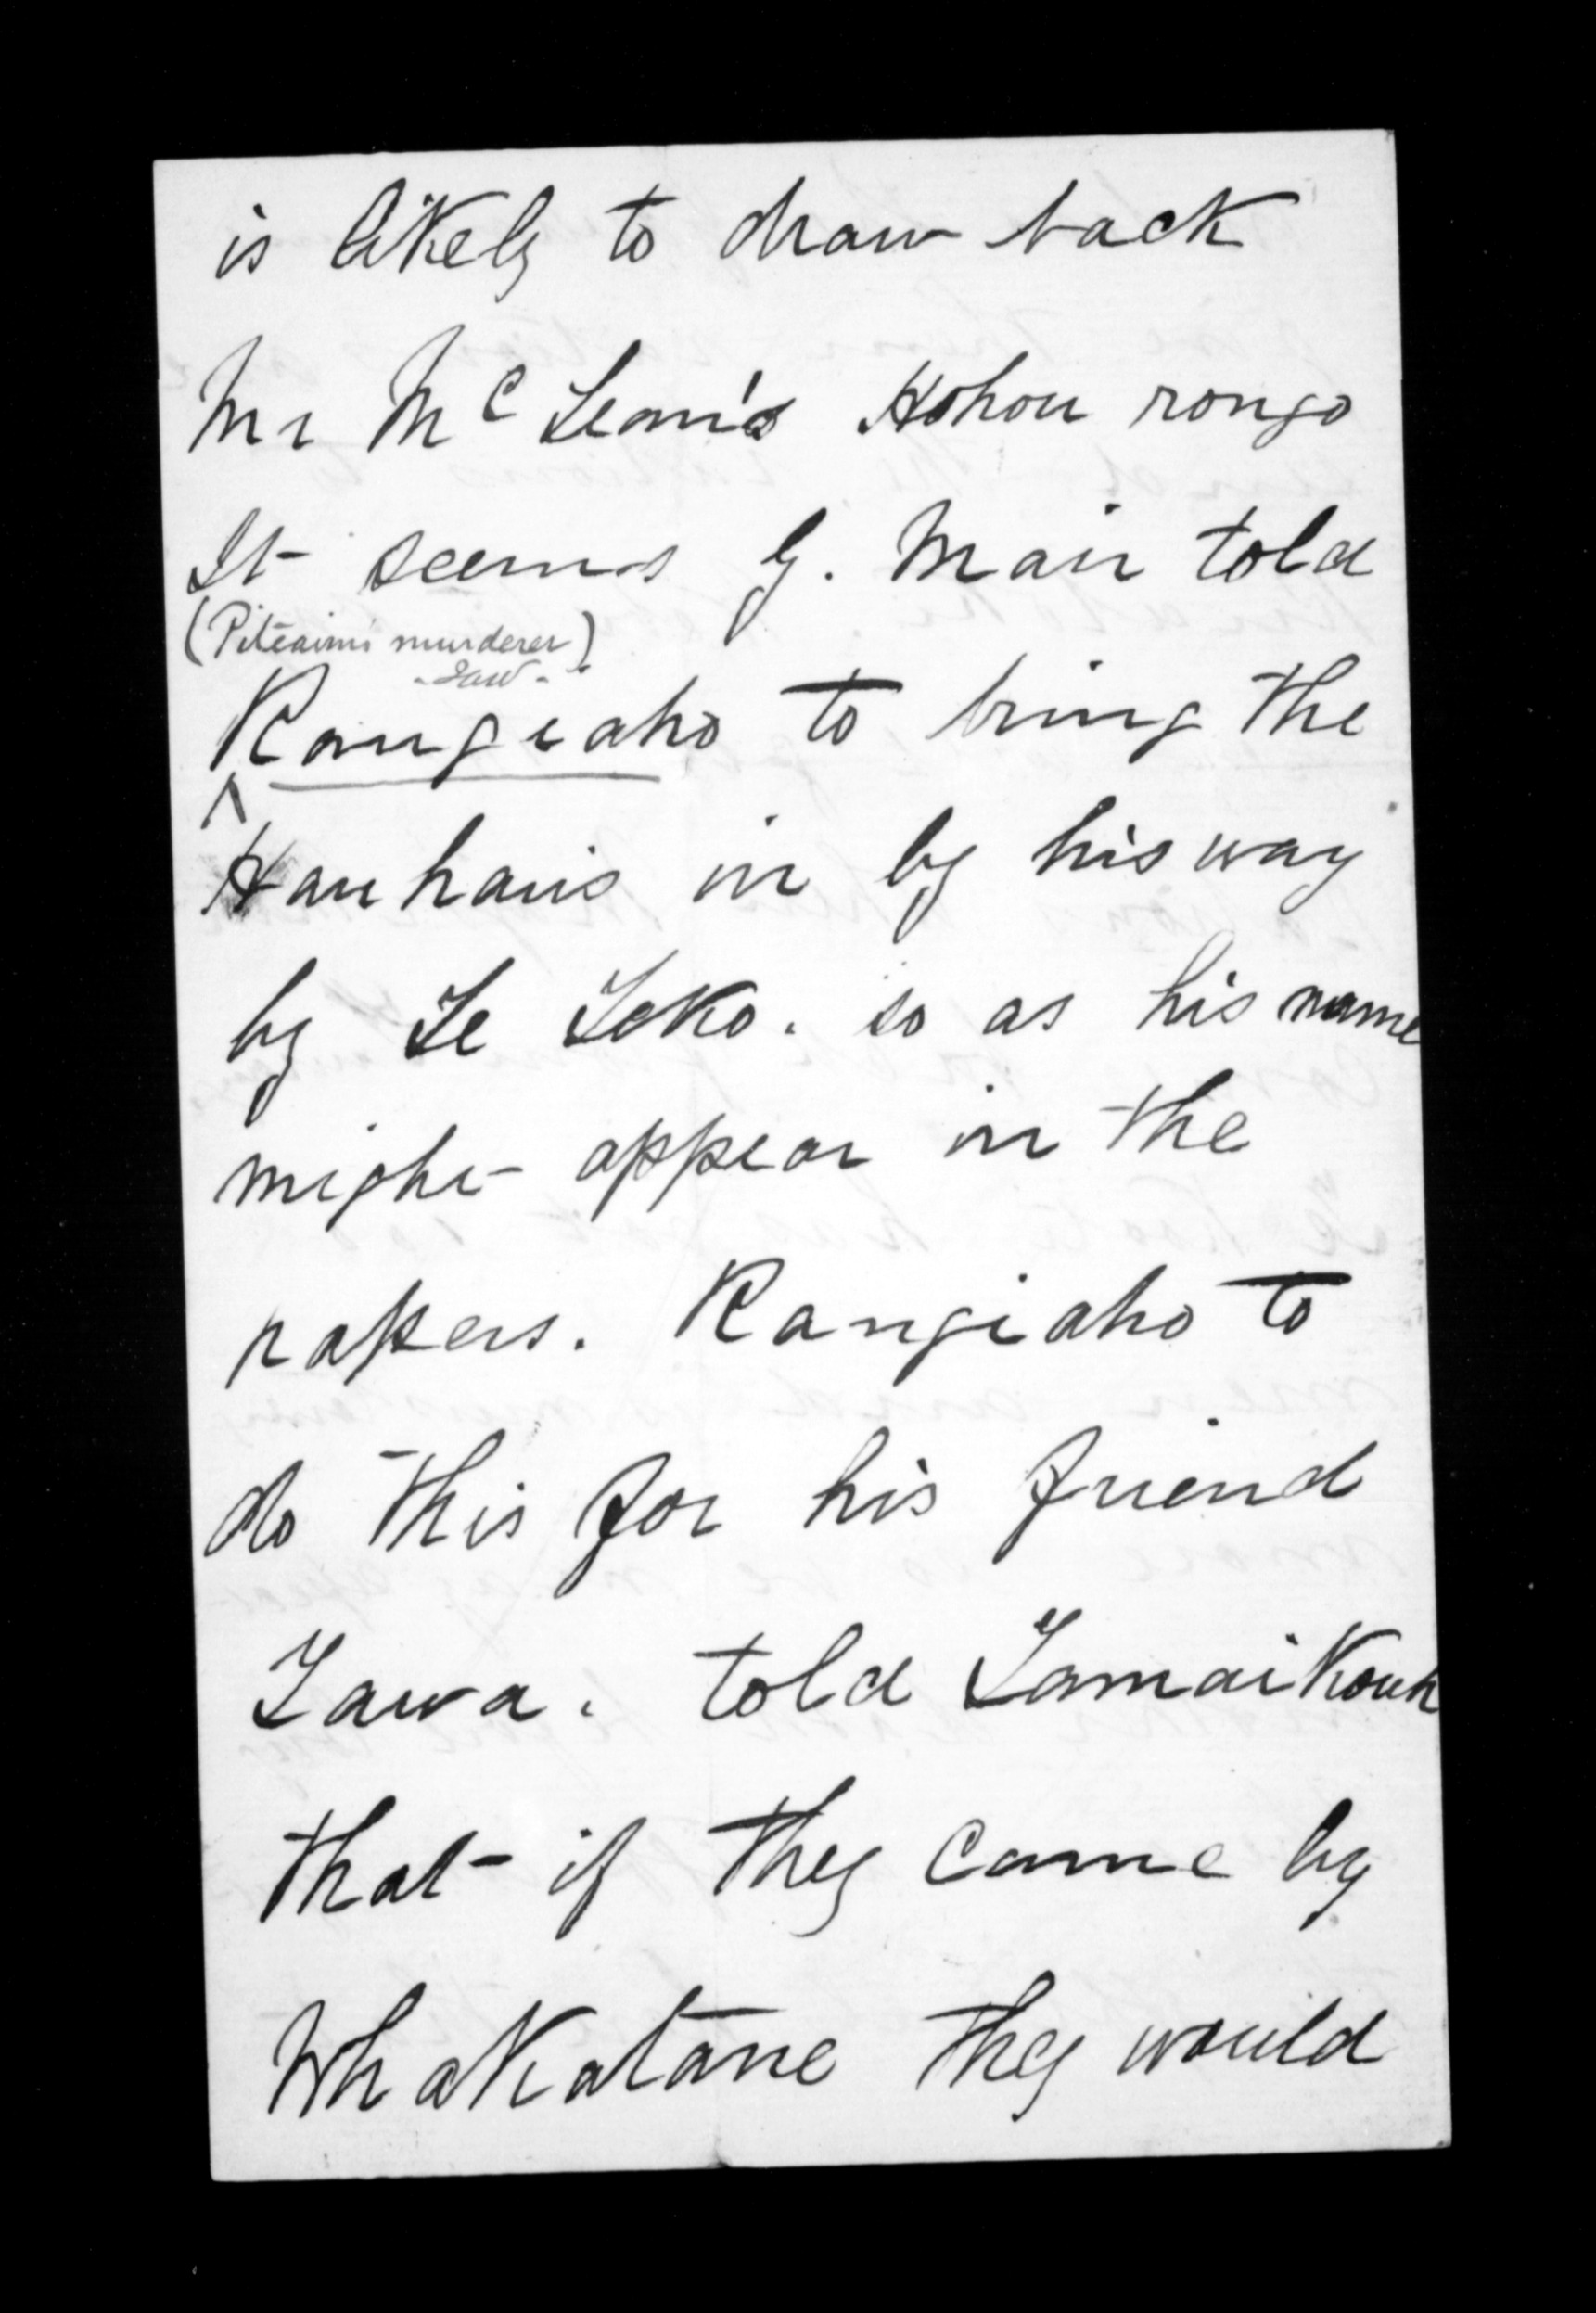 is likely to draw back
Mr McLean's Hohou rongo
It seems G. Mair told
(Pitcairn's murderer)
Rangiaho to bring the
Hauhaus in by his way
by Te Teko. so as his name
might appear in the
papers. Rangiaho to
do this for his friend
Tawa. told Tamaikowh
that if they came by
Whakatane they would